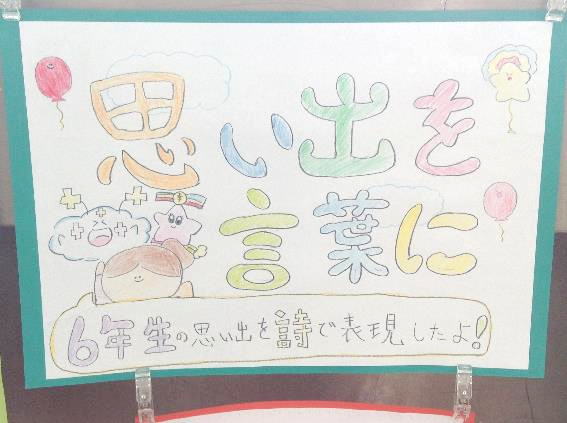 思い出を
言葉に
6年生の思い出を詩で表現したよ!